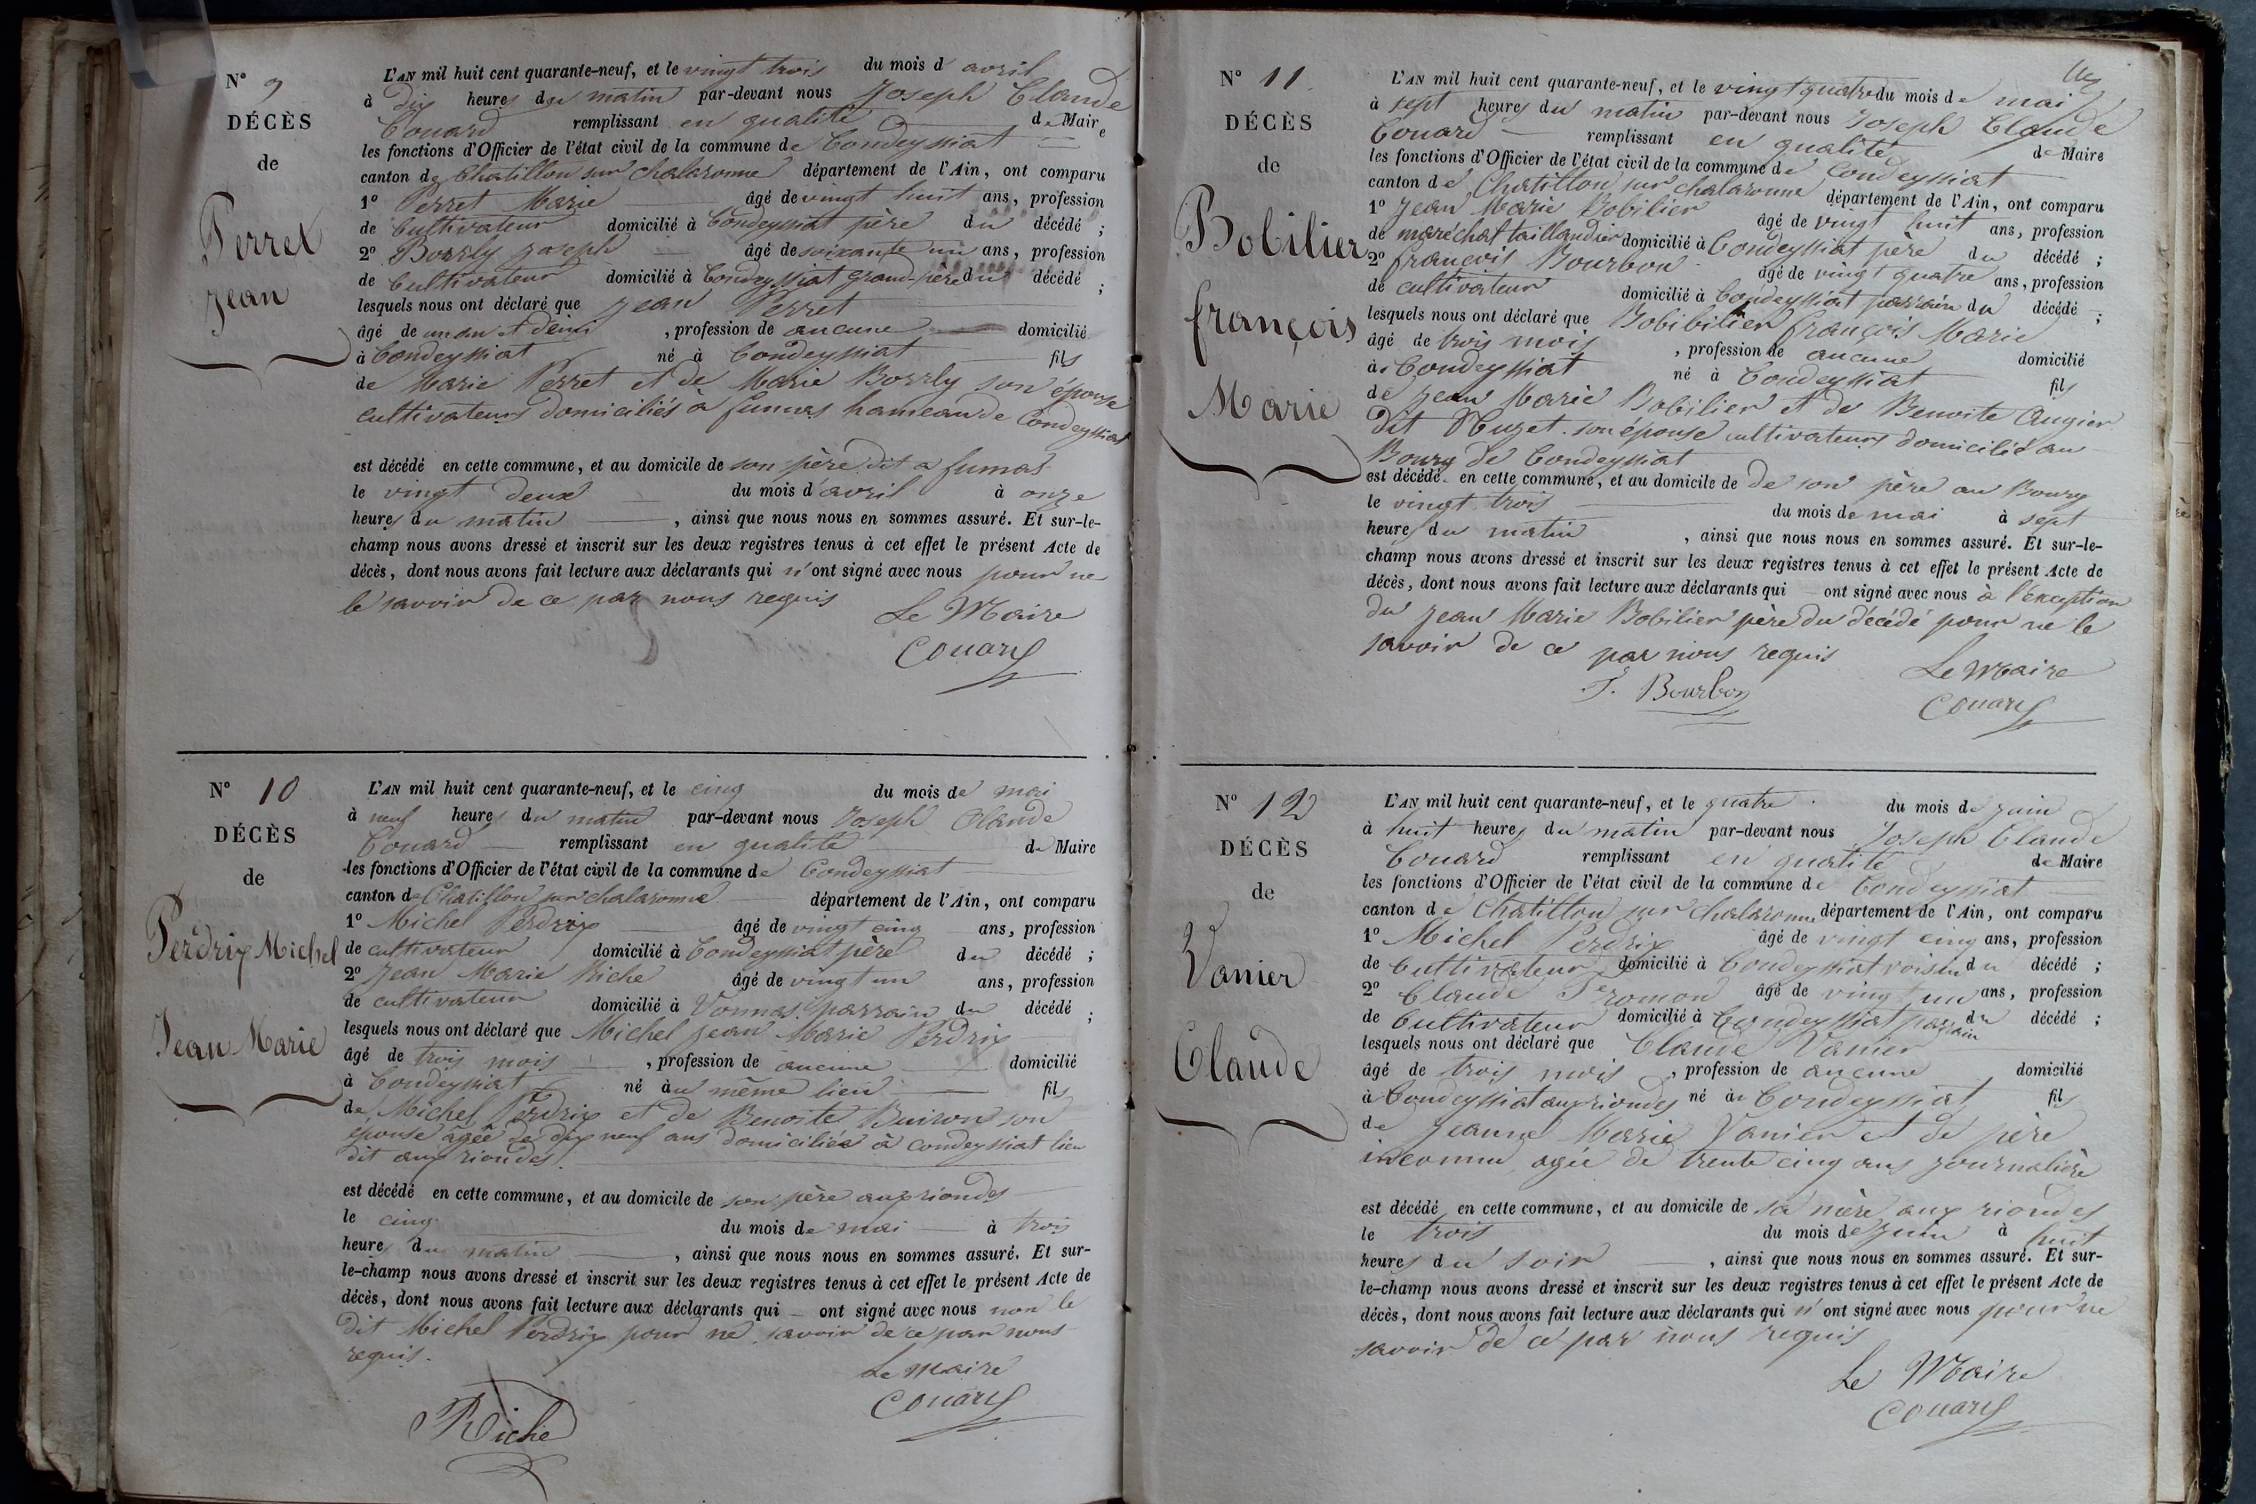 N° 9
DÉCÈS
de
Perret
Jean
L'AN mil huit cent quarante-neuf, et le vingt trois du mois d avril
à dix heures du matin par-devant nous Joseph Claude
Couard remplissant en qualité de Maire
les fonctions d'Officier de l'état civil de la commune de Condeyssiat
canton de Chatillon sur chalaronne département de l'Ain, ont comparu
1° Perret Marie âgé de vingt huit ans, profession
de Cultivateur domicilié à Condeyssiat père du décédé ;
2° Borrly Joseph âgé de soixante un ans, profession
de Cultivateur domicilié à Condeyssiat grand-père du décédé ;
lesquels nous ont déclaré que Jean Perret
âgé de un an et demi , profession de aucune domicilié
à Condeyssiat né à Condeyssiat fils
de Marie Perret et de Marie Borrly son épouse
cultivateurs domiciliés à fumas hameau de Condeyssiat
est décédé en cette commune, et au domicile de son père dit a fumas
le vingt deux du mois d'avril à onze
heures du matin , ainsi que nous nous en sommes assuré. Et sur-le-
champ nous avons dressé et inscrit sur les deux registres tenus à cet effet le présent Acte de
décès, dont nous avons fait lecture aux déclarants qui n'ont signé avec nous pour ne
le savoir de ce par nous requis
Le Maire
Couard
N° 10
DÉCÈS
de
Perdrix Michel
Jean Marie
L'AN mil huit cent quarante-neuf, et le cinq du mois de mai
à neuf heures du matin par-devant nous Joseph Claude
Couard remplissant en qualité de Maire
les fonctions d'Officier de l'état civil de la commune de Condeyssiat
canton de Chatillon sur chalaronne département de l'Ain, ont comparu
1° Michel Perdrix âgé de vingt cinq ans, profession
de cultivateur domicilié à Condeyssiat père du décédé ;
2° Jean Marie Riche âgé de vingt un ans, profession
de cultivateur domicilié à Vonnas parrain du décédé ;
lesquels nous ont déclaré que Michel Jean Marie Perdrix
âgé de trois mois , profession de aucune domicilié
à Condeyssiat né au même lieu fils
de Michel Perdrix et de Benoite Buiron son
épouse âgée de dix neuf ans domiciliés à condeyssiat lieu
dit aux riondes.
est décédé en cette commune, et au domicile de son père aux riondes
le cinq du mois de mai à trois
heures du matin , ainsi que nous nous en sommes assuré. Et sur-
le-champ nous avons dressé et inscrit sur les deux registres tenus à cet effet le présent Acte de
décès, dont nous avons fait lecture aux déclarants qui ont signé avec nous non le
dit Michel Perdrix pour ne savoir de ce par nous
requis.
Le Maire
Couard
Riche
N° 11
DÉCÈS
de
Bobilier
françois
Marie
L'AN mil huit cent quarante-neuf, et le vingt quatre du mois de mai
à sept heures du matin par-devant nous Joseph Claude
Couard remplissant en qualité de Maire
les fonctions d'Officier de l'état civil de la commune de Condeyssiat
canton de Chatillon sur chalaronne département de l'Ain, ont comparu
1° Jean Marie Bobilier âgé de vingt huit ans, profession
de maréchat taillandier domicilié à Condeyssiat père du décédé ;
2° françois Bourbon âgé de vingt quatre ans, profession
de cultivateur domicilié à Condeyssiat parrain du décédé ;
lesquels nous ont déclaré que Bobibilier françois Marie
âgé de trois mois , profession de aucune domicilié
à Condeyssiat né à Condeyssiat fils
de Jean Marie Bobilier et de Benoite Augier
dit Muzet son épouse cultivateurs domicilié au
Bourg de Condeyssiat
est décédé en cette commune, et au domicile de de son père au Bourg
le vingt trois du mois de mai à sept
heures du matin , ainsi que nous nous en sommes assuré. Et sur-le-
champ nous avons dressé et inscrit sur les deux registres tenus à cet effet le présent Acte de
décès, dont nous avons fait lecture aux déclarants qui ont signé avec nous à l'exception
du Jean Marie Bobilier père du décédé pour ne le
savoir de ce par nous requis
Le Maire
F. Bourbon
Couard
N° 12
DÉCÈS
de
Vanier
Claude
L'AN mil huit cent quarante-neuf, et le quatre du mois de juin
à huit heures du matin par-devant nous Joseph Claude
Couard remplissant en qualité de Maire
les fonctions d'Officier de l'état civil de la commune de Condeyssiat
canton de Chatillon sur Chalaronne département de l'Ain, ont comparu
1° Michel Perdrix âgé de vingt cinq ans, profession
de Cultivateur domicilié à Condeyssiat voisin du décédé ;
2° Claude Peromon âgé de vingt un ans, profession
de Cultivateur domicilié à Condeyssiat parrain du décédé ;
lesquels nous ont déclaré que Claude Vanier
âgé de trois mois , profession de aucune domicilié
à Condeyssiat aux riondes né à Condeyssiat fils
de Jeanne Marie Vanier et de père
inconnu agée de trente cinq ans journalière
est décédé en cette commune, et au domicile de sa mère aux riondes
le trois du mois de juin à huit
heures du soir , ainsi que nous nous en sommes assuré. Et sur-
le-champ nous avons dressé et inscrit sur les deux registres tenus à cet effet le présent Acte de
décès, dont nous avons fait lecture aux déclarants qui n'ont signé avec nous pour ne
savoir de ce par nous requis
Le Maire
Couard